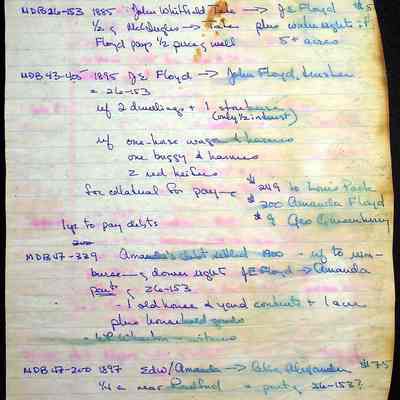 MDB26-153 1885 John Whitfield → J E Floyd $5
1/2 g McDuges → plus water rights if
Floyd pays 1/2 price g well 5+ acres
MDB43-405 1895 J E Floyd → John Floyd, trustee
= 26-153
w/ 2 dwellings + 1 storehouse
(only 1/2 interest)
w/ one-horse wagon & harness
one buggy & harness
2 red heifers
for collateral for pay— $249 to Louis Pack
$200 Amanda Floyd
$9 Geo
1 yr to pay debts
MDB47-339 Amanda's debt settled 1900 - w/ to reim-
burse dower right J E Floyd → Amanda
part g 26-153
- 1 old house & yard contents + 1 acre
plus household goods
MDB47-200 1897 Edw/Amanda → Alexander $175
1/4 a near Radford = part g 26-153?